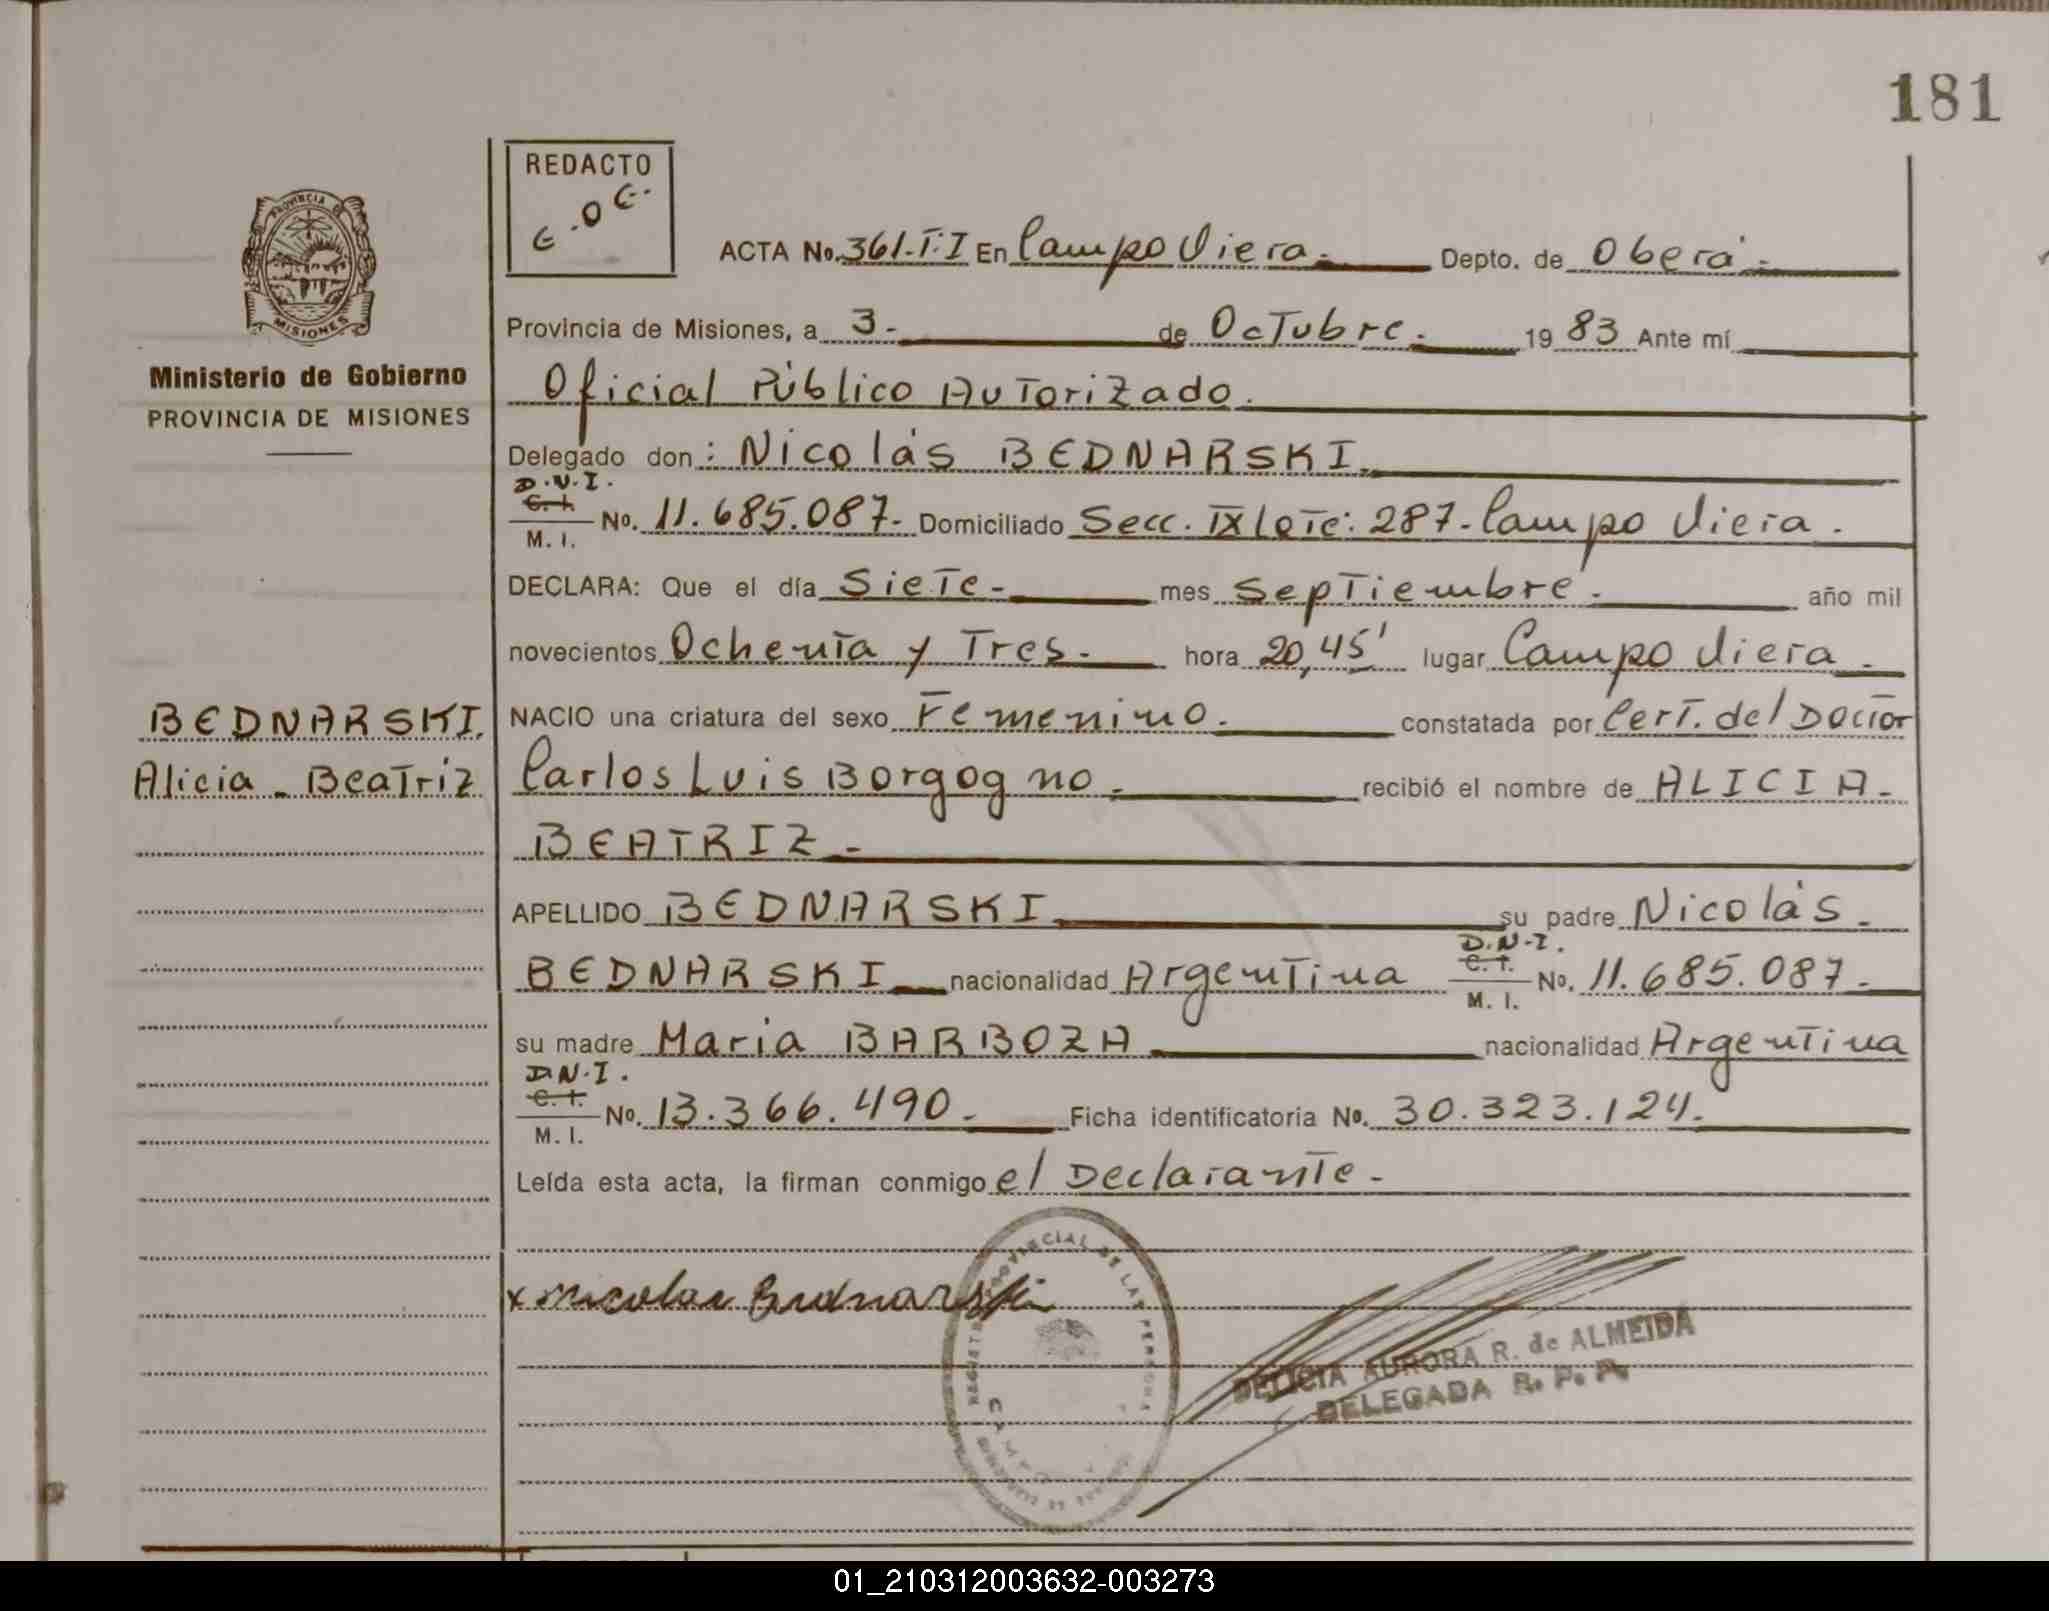 181
REDACTO
E.O.E.
PROVINCIA DE
MISIONES
Ministerio de Gobierno
PROVINCIA DE MISIONES
ACTA No. 361-T:I En Campo Viera.- Depto. de Oberá.-
Provincia de Misiones, a 3.- de Octubre.- 1983 Ante mí
Oficial Público Autorizado.
Delegado don: Nicolás BEDNARSKI.
D.N.I.
C. I.
M. I. No. 11.685.087.- Domiciliado Secc. IX lote: 287- Campo Viera.
DECLARA: Que el día Siete.- mes Septiembre.- año mil
novecientos Ochenta y Tres.- hora 20,45' lugar Campo Viera.
BEDNARSKI, NACIO una criatura del sexo Femenino.- constatada por Cert. del Doctor
Alicia - Beatriz Carlos Luis Borgogno.- recibió el nombre de ALICIA-
BEATRIZ.-
APELLIDO BEDNARSKI su padre Nicolás.
BEDNARSKI nacionalidad Argentina D.N.I. C. I. M. I. No. 11.685.087.-
su madre Maria BARBOZA nacionalidad Argentina
D.N.I.
C. I.
M. I. No. 13.366.490.- Ficha identificatoria No. 30.323.124.
Leída esta acta, la firman conmigo el Declarante.-
x Nicolas Bednarski
REGISTRO PROVINCIAL DE LAS PERSONAS
DELICIA AURORA R. de ALMEIDA
DELEGADA R. P. P.
01_210312003632-003273